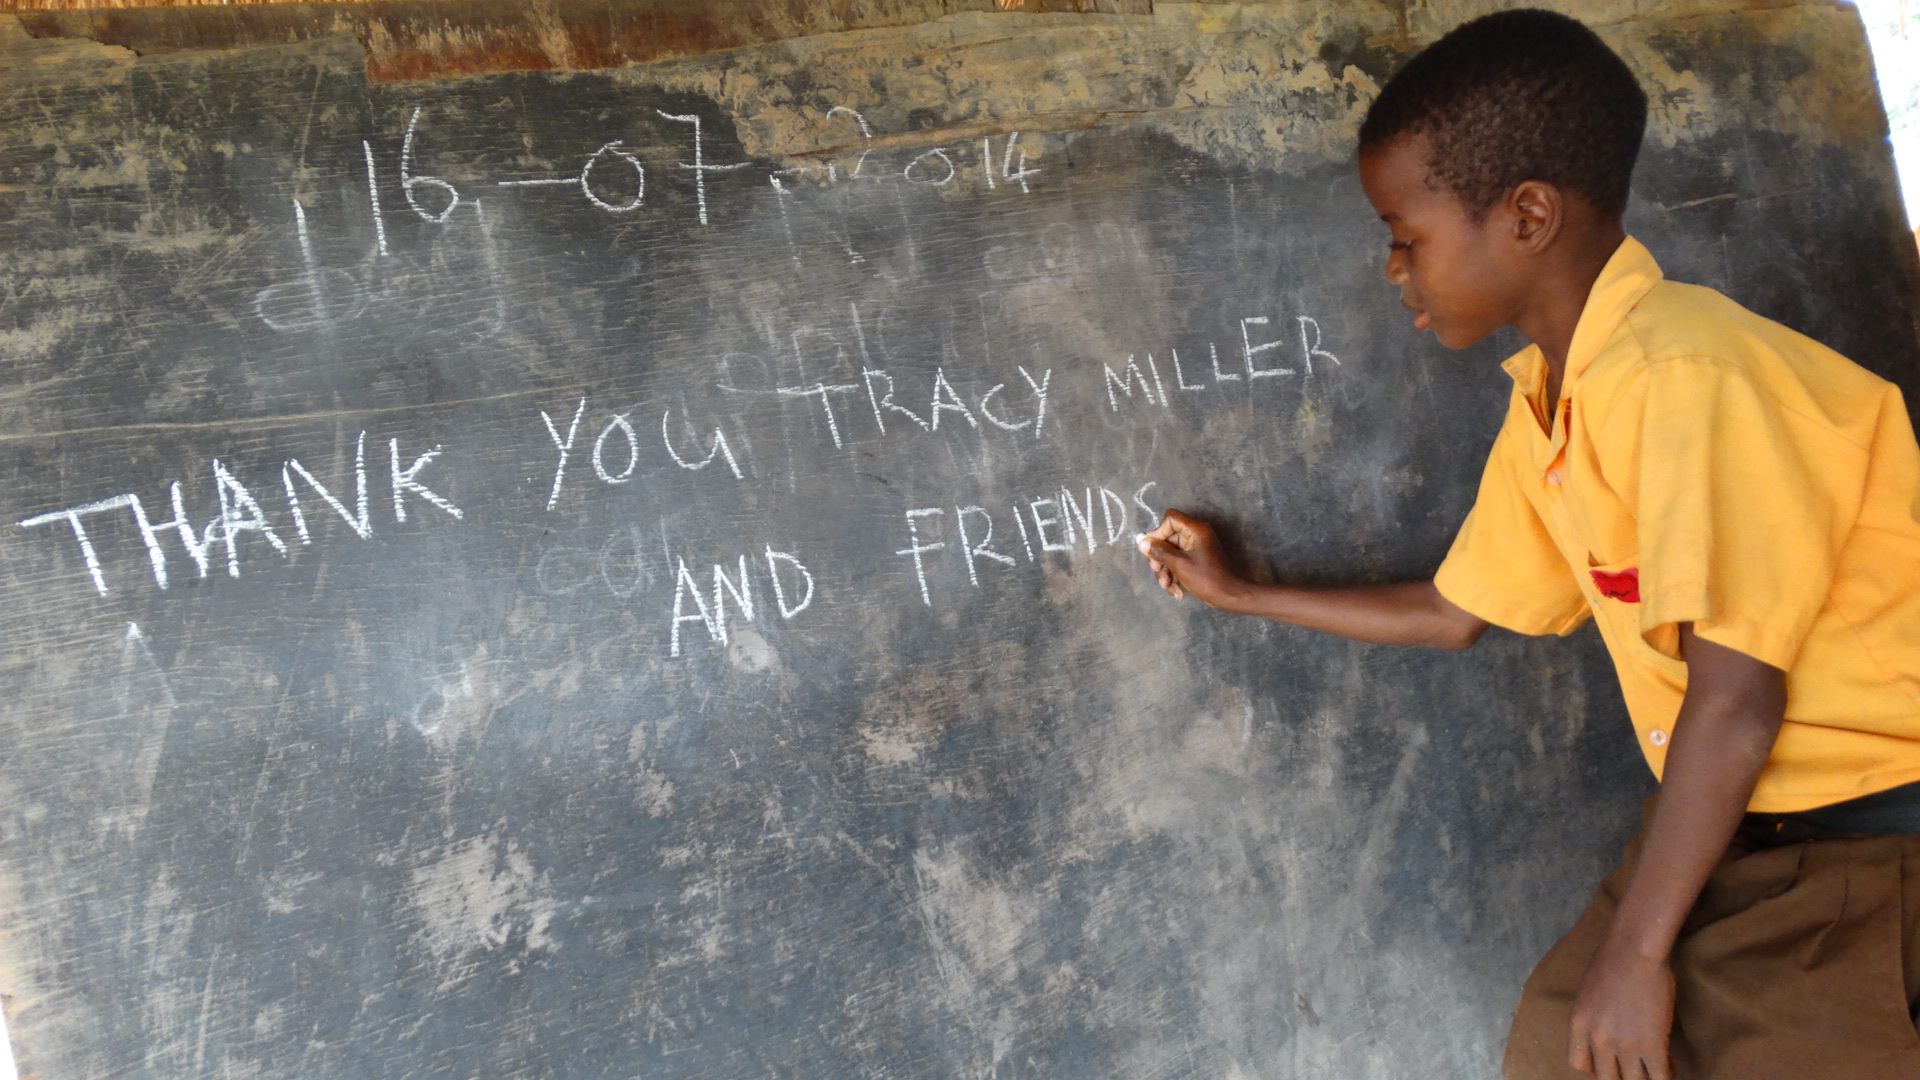 16-07-2014
THANK YOU TRACY MILLER
AND FRIENDS